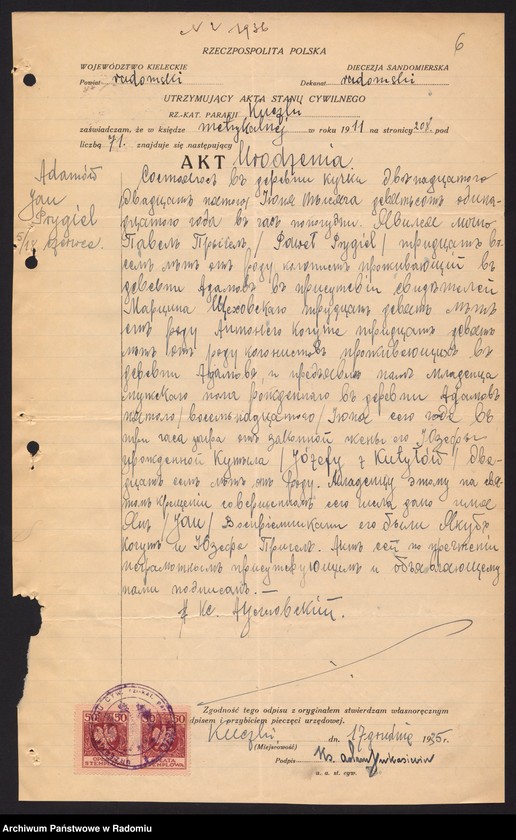 N V 1936
6
RZECZPOSPOLITA POLSKA
WOJEWÓDZTWO KIELECKIE
DIECEZJA SANDOMIERSKA
Powiat radomski
Dekanat radomski
UTRZYMUJĄCY AKTA STANU CYWILNEGO
RZ.-KAT. PARAFJI Kuczki
zaświadczam, że w księdze metrykalnej w roku 1911 na stronicy 208. pod
liczbą 71. znajduje się następujący
AKT Urodzenia.
Adamów
Jan
Prygiel
5/18
czerwca.
Состоялось въ деревни Кучки двѣнадцатого
двадцать пятого Іюня тысяча девятьсотъ одина-
дцатого года въ часъ пополудни. Явился лично
Павелъ Пригель / Paweł Prygiel / тридцать во-
семъ лѣтъ отъ роду колонистъ проживающій въ
деревни Адамовъ въ присутствіи свидѣтелей
Марцина тридцать девять лѣтъ
отъ роду Антонего Когута тридцать девять
лѣтъ отъ роду колонистовъ проживающихъ въ
деревни Адамовъ и предъявилъ намъ младенца
мужескаго пола рожденного въ деревни Адамовъ
пятого / восемьнадцатого / Іюня сего года въ
три часа утра отъ законной жены его Юзефы
урожденной Кутыла / Józefy z Kutyłów / два-
дцать семь лѣтъ отъ роду. Младенцу этому на свя-
томъ крещеніи совершенномъ сего числа дано имя
Янъ / Jan / Воспріемниками его были Якубъ
Когутъ и Юзефа Пригель. Актъ сей по прочтеніи
неграмотнымъ присутствующимъ и объявляющему
нами подписанъ.—
Кс.
Zgodność tego odpisu z oryginałem stwierdzam własnoręcznym
podpisem i przybiciem pieczęci urzędowej.
Kuczki dn. 17 grudnia 1935 r.
(Miejscowość)
Podpis Ks. Adam Łukasiewicz
u. a. st. cyw.
50 50
OPŁATA
STEMPLOWA
Archiwum Państwowe w Radomiu